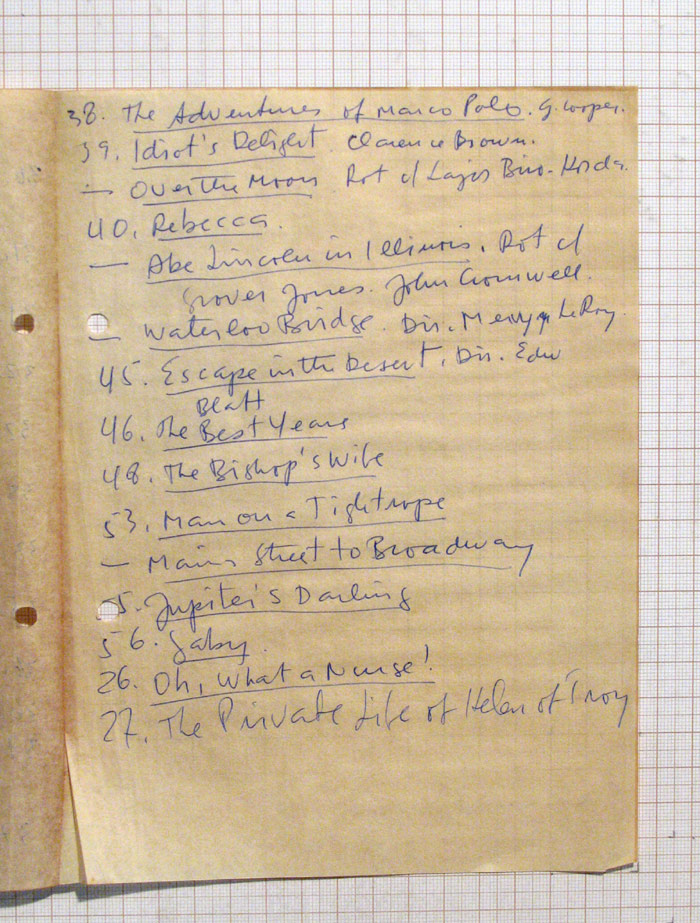 38. The Adventures of Marco Polo. G. Cooper.
39. Idiot's Delight. Clarence Brown.
— Over the Moon Rot c/ Lajos Biro-Korda.
40. Rebecca.
— Abe Lincoln in Illinois. Rot c/
Grover Jones. John Cromwell.
— Waterloo Bridge. Dir. Mervyn LeRoy.
45. Escape in the Desert. Dir. Edw
Blatt
46. The Best Years
48. The Bishop's Wife
53. Man on a Tightrope
— Main Street to Broadway
55. Jupiter's Darling
56. Gaby.
26. Oh, What a Nurse!
27. The Private Life of Helen of Troy